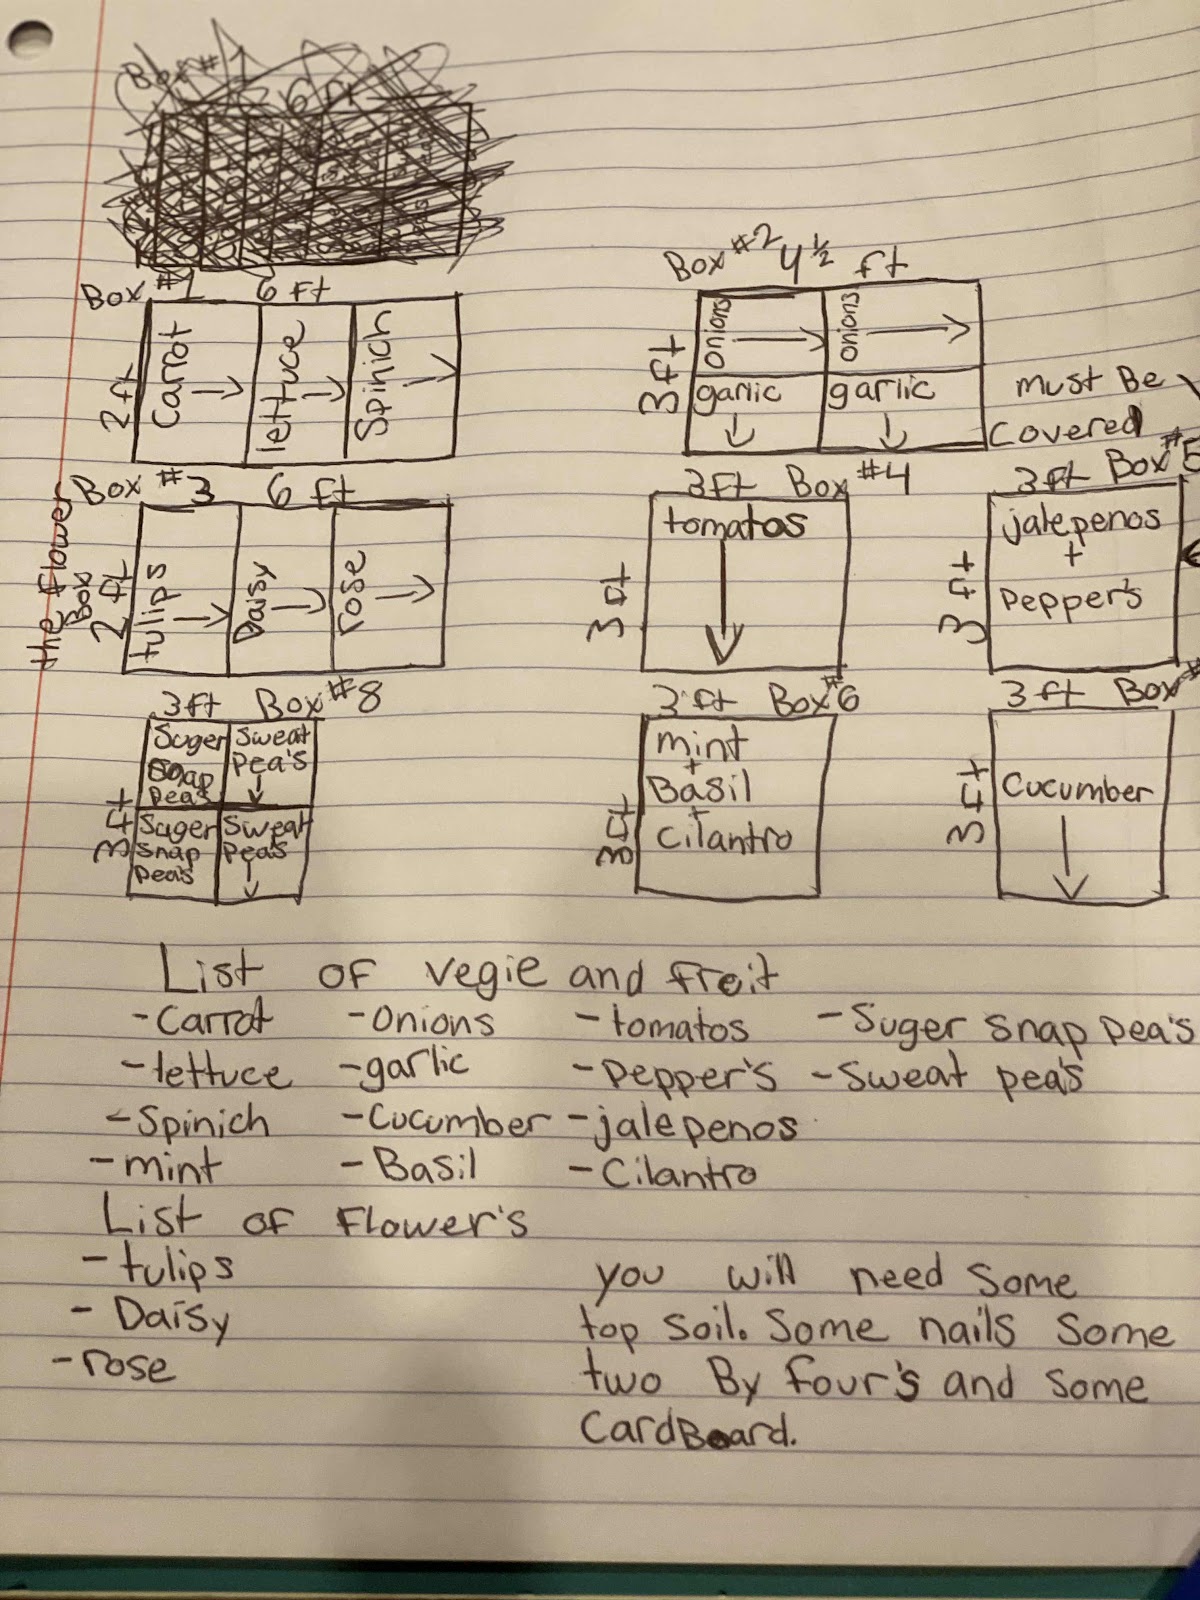 Box #1
6 ft
Box #1 6 ft
2 ft
Carrot
lettuce
Spinich
Box #2 4 ½ ft
3 ft
onions
onions
garlic
garlic
must Be
Covered
Box #3 6 ft
the flower
Box
2 ft
tulips
Daisy
rose
3ft Box #4
3 ft
tomatos
3 ft Box #5
3 ft
jalepenos
+
Pepper's
3ft Box #8
3 ft
Suger
snap
Peas
Sweat
Pea's
Suger
snap
Pea's
Sweat
Pea's
3 ft Box #6
3 ft
mint
+
Basil
+
Cilantro
3 ft Box #
3 ft
Cucumber
List of vegie and freit
- Carrot - Onions - tomatos - Suger Snap Pea's
- lettuce - garlic - Pepper's - Sweat pea's
- Spinich - Cucumber - jalepenos
- mint - Basil - Cilantro
List of Flower's
- tulips
- Daisy
- rose
you will need some
top soil. Some nails some
two By four's and some
CardBoard.